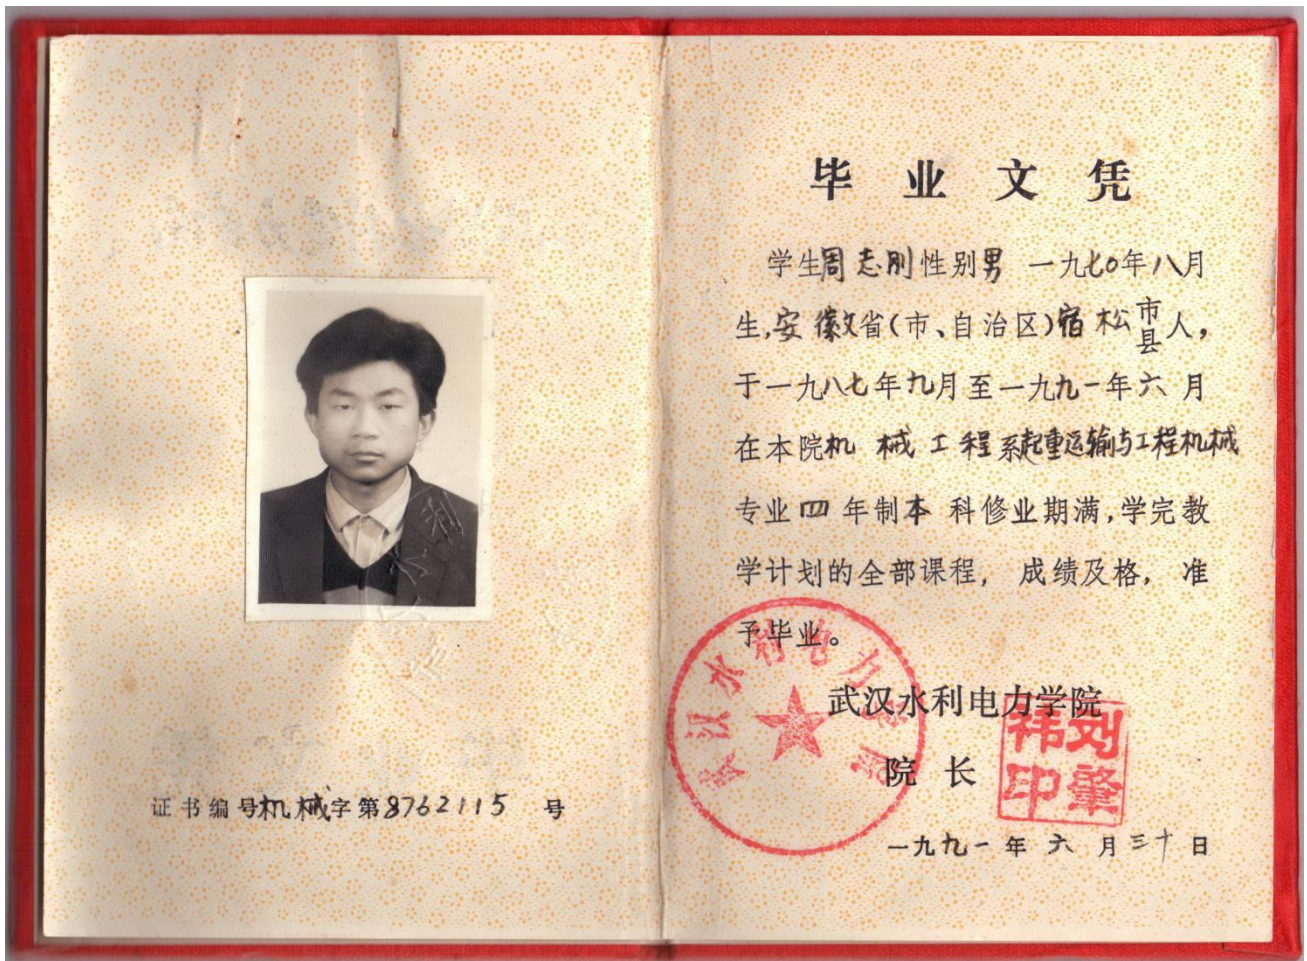 证书编号机械字第8762115 号
毕业文凭
学生周志刚性别男 一九七〇年八月
生,安徽省(市、自治区)宿松市县人,
于一九八七年九月至一九九一年六月
在本院机械工程系起重运输与工程机械
专业四年制本科修业期满,学完教
学计划的全部课程, 成绩及格, 准
予毕业。
武汉水利电力学院
院长
刘肇祎印
武汉水利电力学院
一九九一年六月三十日